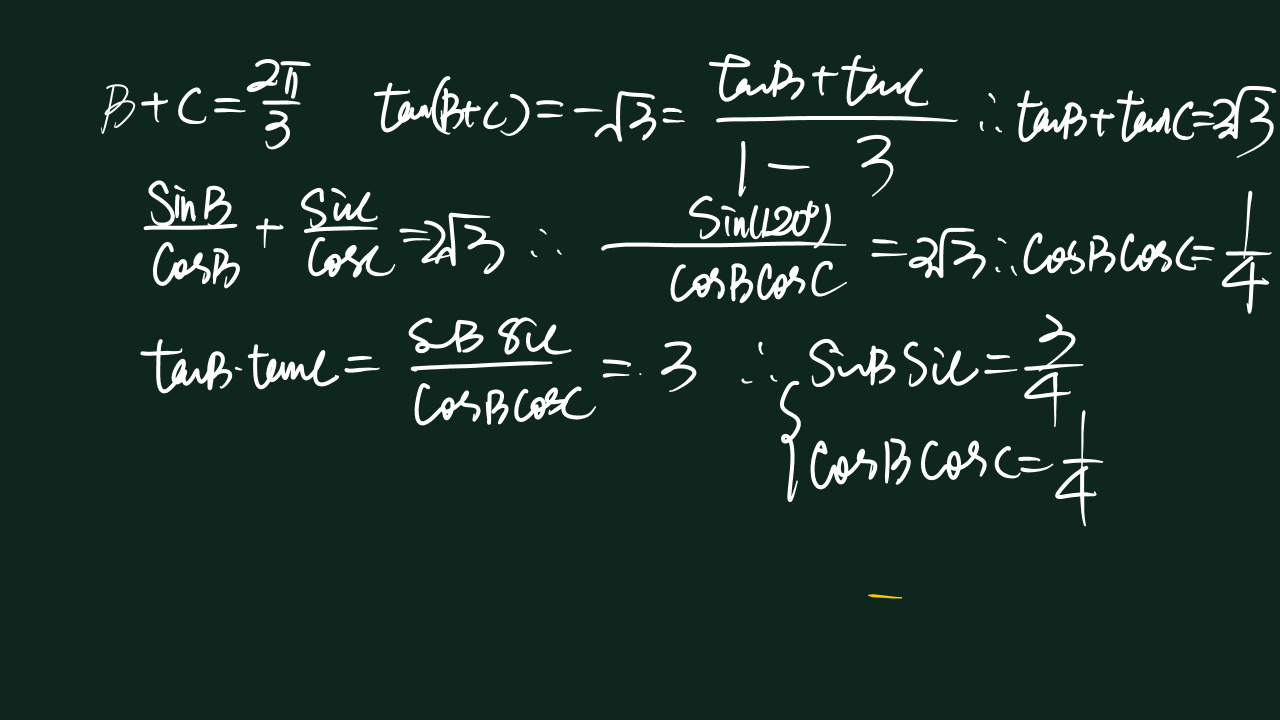 B+C=2π/3 tan(B+C)=-√3=(tanB+tanC)/(1-3) ∴tanB+tanC=2√3
sinB/cosB+sinC/cosC=2√3 ∴ sin(120°)/(cosBcosC)=2√3 ∴cosBcosC=1/4
tanB·tanC=(sinBsinC)/(cosBcosC)=3 ∴ sinBsinC=3/4
cosBcosC=1/4